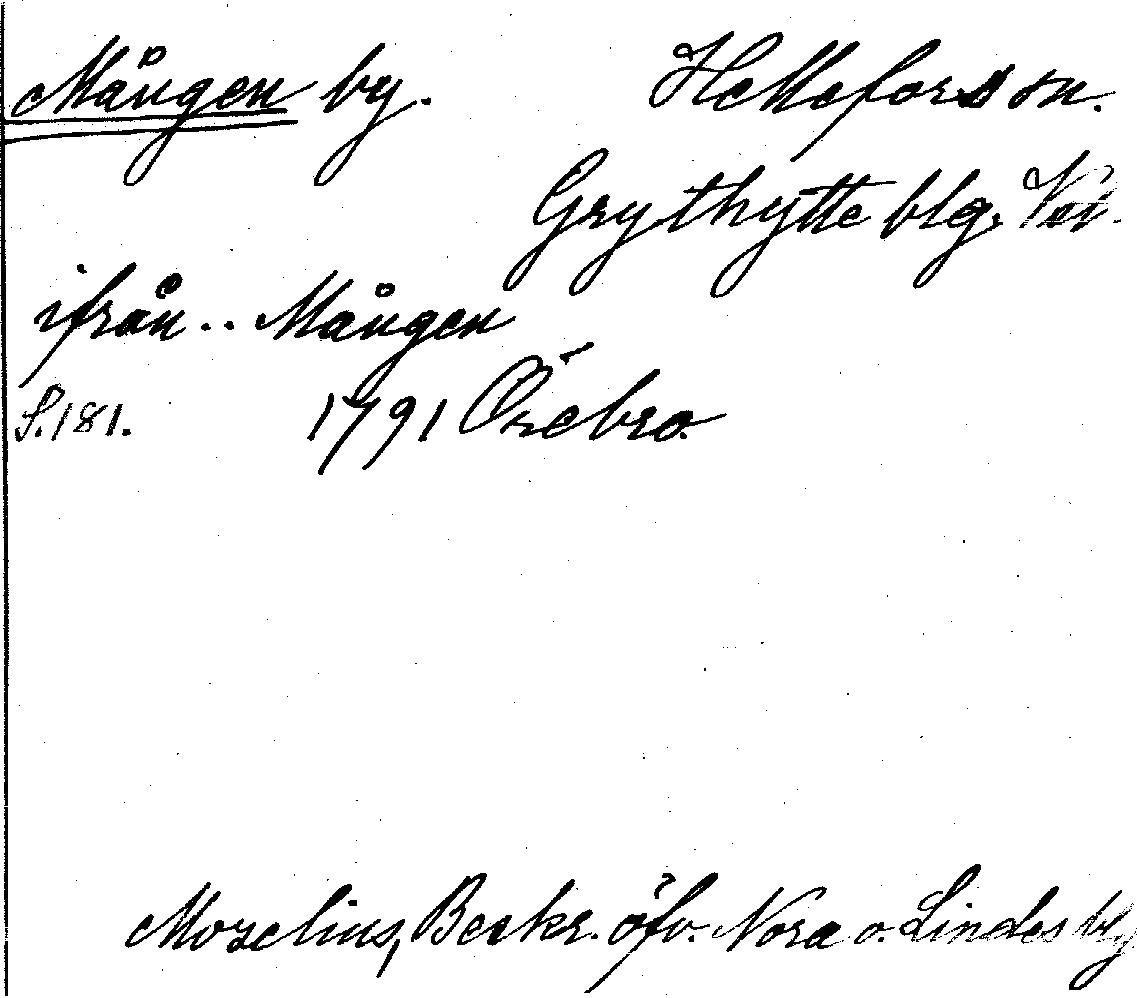 Mången by. Hellefors sn.
Grythytte blg. Vst.
ifrån .. Mången
S. 181. 1791 Örebro.
Morelius, Beskr. öfv. Nora o. Lindes blg